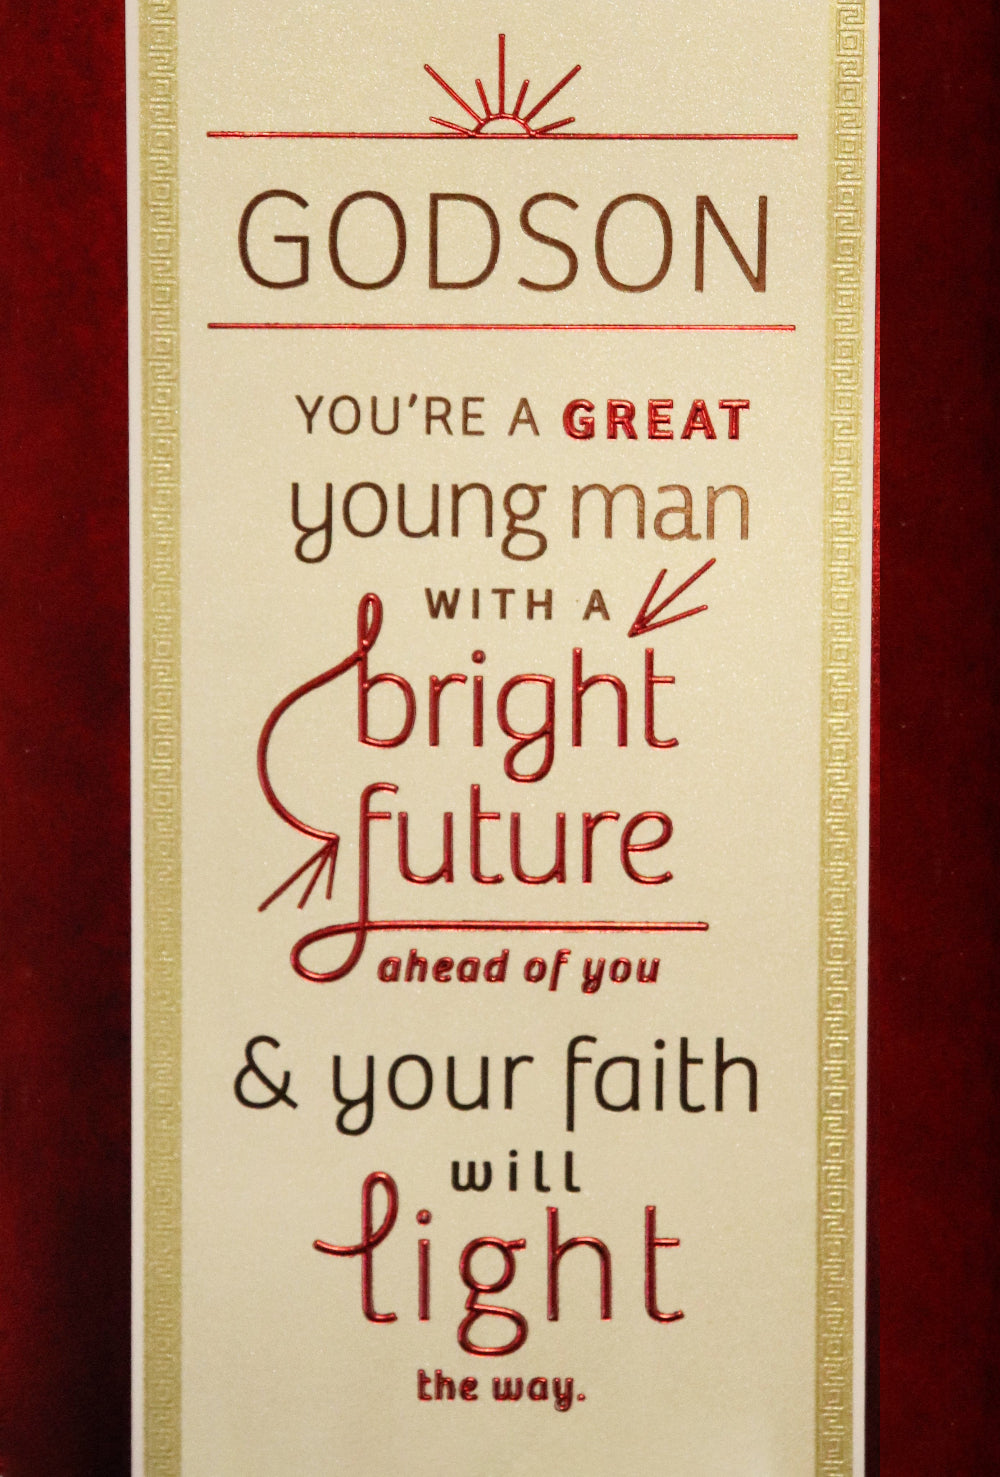 GODSON
YOU'RE A GREAT
young man
WITH A
bright
future
ahead of you
& your faith
will
light
the way.